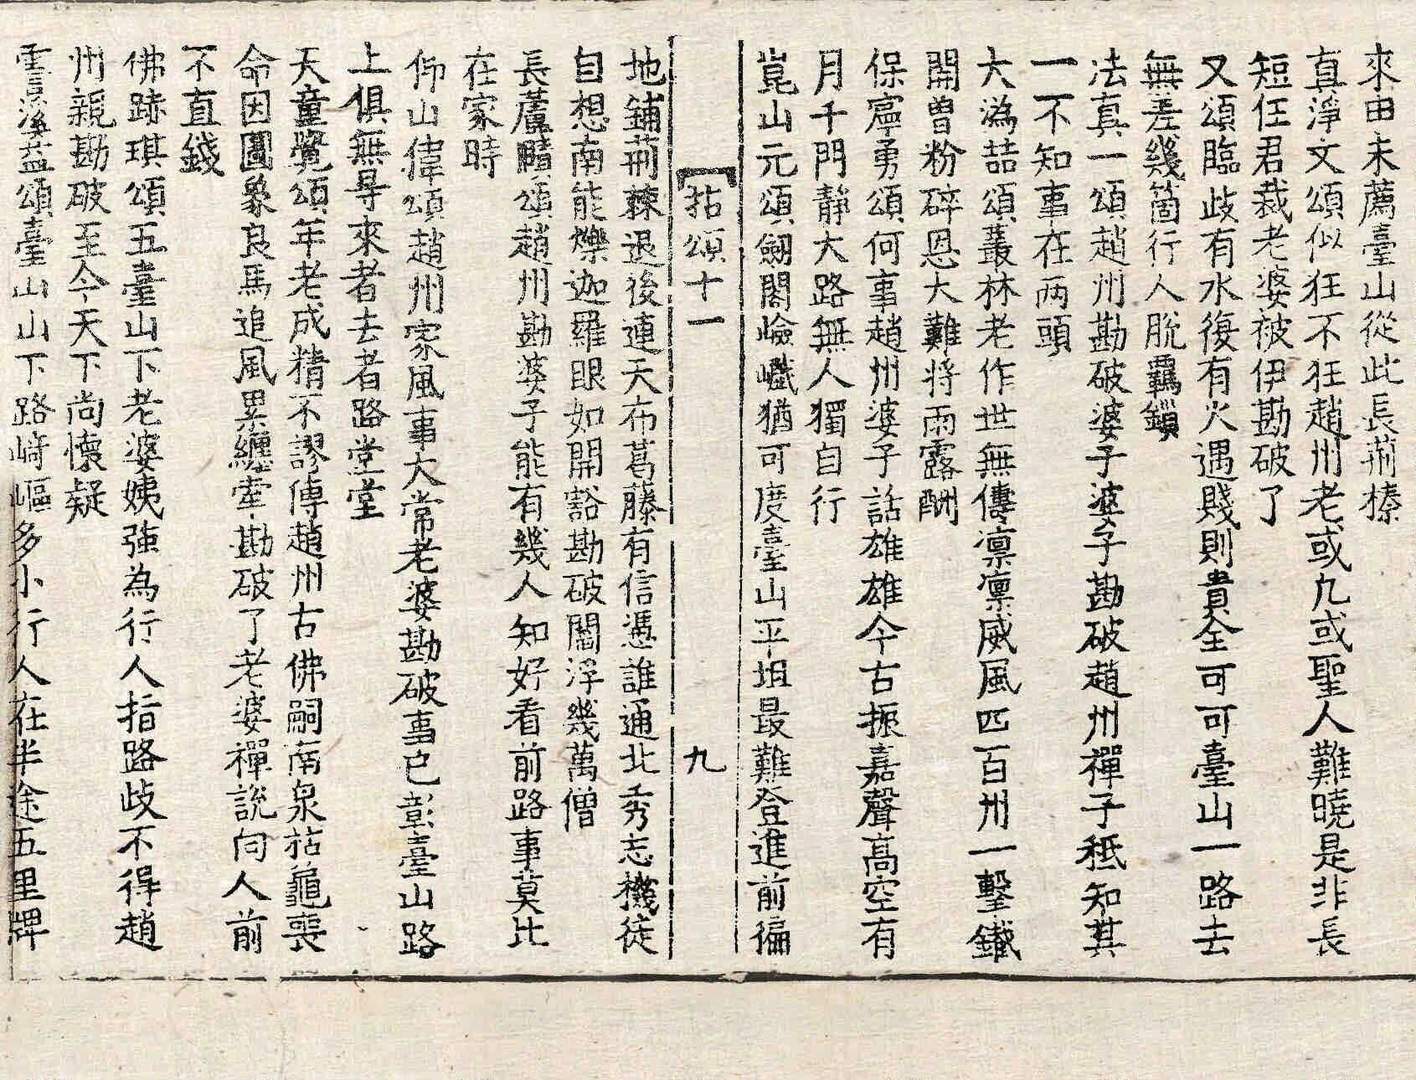 來由未薦臺山從此長荊榛
真淨文頌似狂不狂趙州老或凡或聖人難曉是非長
短任君裁老婆被伊勘破了
又頌臨歧有水復有火遇賤則貴全可可臺山一路去
無差幾箇行人脫羈鎖
法真一頌趙州勘破婆子婆子勘破趙州禪子秪知其
一不知事在兩頭
大溈喆頌叢林老作世無儔凛凛威風四百州一擊鐵
開曾粉碎恩大難將雨露酬
保寧勇頌何事趙州婆子話雄雄今古振嘉聲高空有
月千門靜大路無人獨自行
崑山元頌劒閣嶮巇猶可度臺山平坦最難登進前徧
拈頌十一 九
地鋪荊棘退後連天布葛藤有信憑誰通北秀志機徒
自想南能爍迦羅眼如開豁勘破閻浮幾萬僧
長蘆賾頌趙州勘婆子能有幾人知好看前路事莫比
在家時
仰山偉頌趙州家風事大常老婆勘破事已彰臺山路
上俱無㝵來者去者路堂堂
天童覺頌年老成精不謬傳趙州古佛嗣南泉枯龜喪
命因圖象良馬追風累纏牽勘破了老婆禪說向人前
不直錢
佛跡琪頌五臺山下老婆姨強為行人指路歧不得趙
州親勘破至今天下尚懷疑
霅溪益頌臺山山下路崎嶇多小行人在半途五里牌